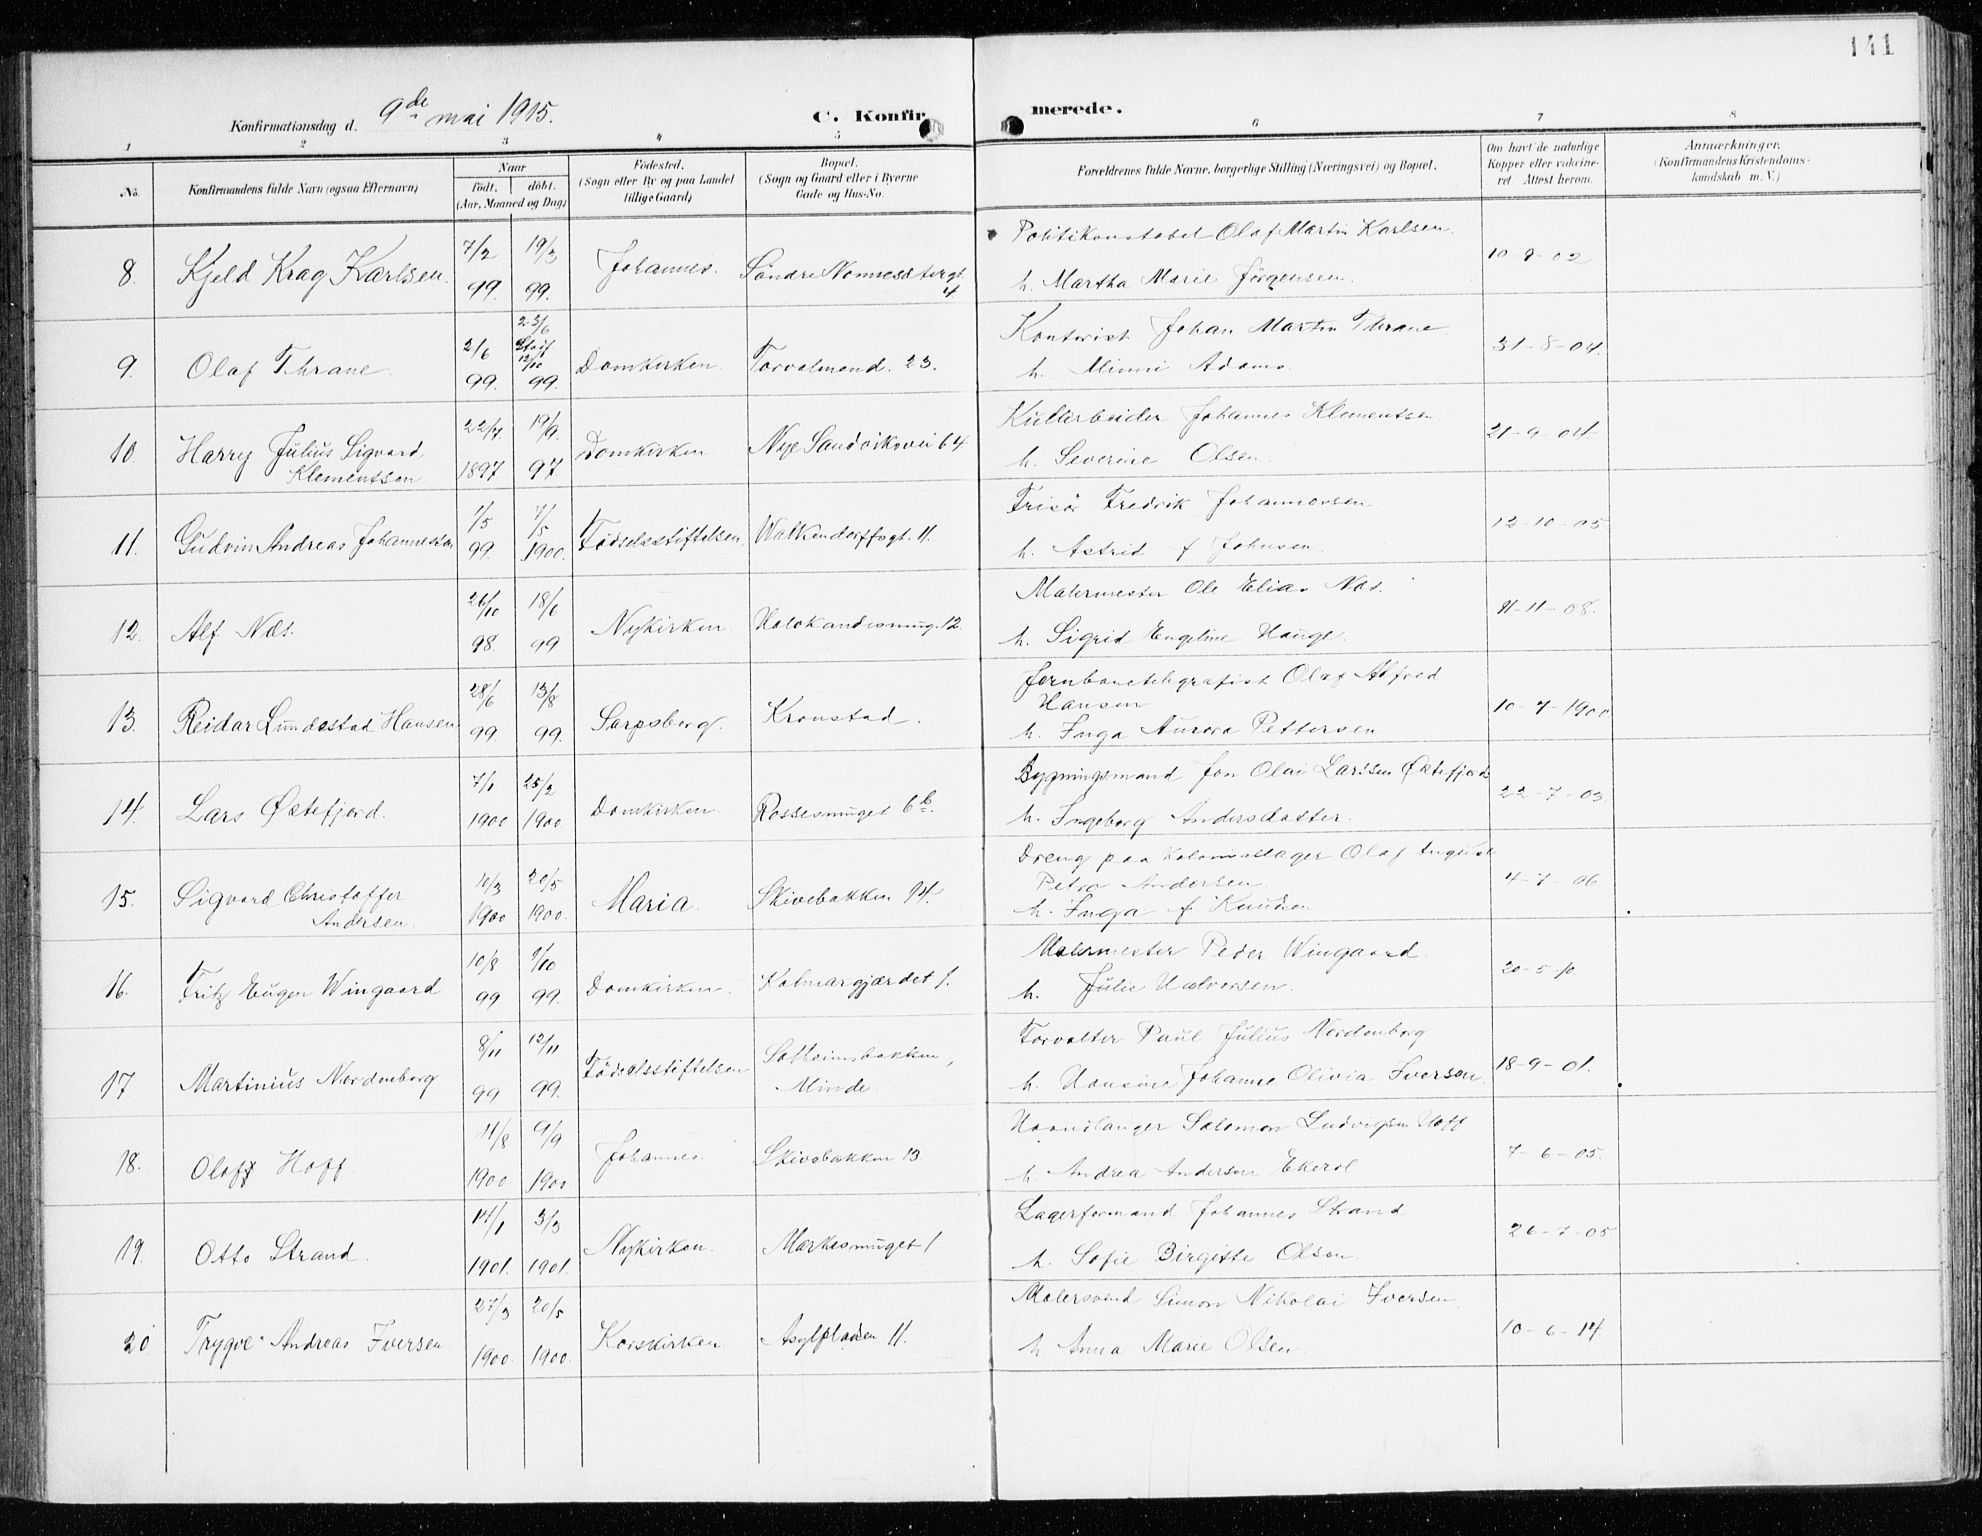 141
Konfirmationsdag d. 9de mai 1915.
C. Konfir merede.
1 2 3 4 5 6 7 8
No.
Konfirmandens fulde Navn (ogsaa Efternavn)
Naar
født. døbt.
(Aar, Maaned og Dag)
Fødested.
(Sogn eller By og paa Landet
tillige Gaard)
Bopæl.
(Sogn og Gaard eller i Byerne
Gade og Hus-No.
Forældrenes fulde Navne, borgerlige Stilling (Næringsvei) og Bopæl.
Om havt de naturlige
Kopper eller vakcine-
ret. Attest herom.
Anmærkninger.
(Konfirmandens Kristendoms-
kundskab m. V.)
8. Kjeld Krag Karlsen. 7/2 99. 19/3 99. Johannes. Søndre 4
Politikonstabel Olaf Martin Karlsen.
h. Martha Marie Jørgensen. 10-9-02
9. Olaf Thrane 2/6 99. 23/6 12/10 99. Domkirken. Torvalmend. 23.
Kontorist Johan Martin Thrane
h. Minni Adams 31-8-04.
10 Harry Julius Sigvard
Klementssen 22/7 1897 19/9. 97. Domkirken. Nye Sandviksvei 64
Kularbeider Johannes Klementsen
h. Severine Olsen. 21-9-04.
11. Gudvin Andreas Johannessen 1/5 99. 7/5 1900. Fødselsstiftelsen. Walkendorffsgt. 11.
Frisør Fredrik Johannessen
h. Astrid f Johnsen. 12-10-05
12. Alf Næs. 26/10 98. 18/6 99 Nykirken. 12.
Malermester Ole Elias Næs.
h. Sigrid Engeline Hauge. 11-11-08.
13. Reidar Lundestad Hansen 28/6 99. 13/8 99. Sarpsborg. Kronstad.
Jernbanetelegrafist Olaf Alfred
Hansen
h. Inga Aurora Pettersen. 10-7-1900
14. Lars Østefjord. 7/1 1900 25/2 1900. Domkirken. Rossesmuget 6b.
Bygningsmand Jon Olai Larssen Østefjord
h. Ingeborg Andersdatter. 22-7-03.
15. Sigvard Christoffer
Andersen. 10/3 1900 20/5 1900. Maria. Skivebakken 14.
Dreng paa Kolonialager Olaf August
Petro Andersen.
h. Inga f Knudsen 4-7-06
16. Fritz Eugen Wingaard 10/8 99 1/10 99. Domkirken. Kalmargjærdet 1.
Malermester Peder Wingaard.
h. Julie Halvorsen. 20-5-10
17. Martinius Nordenborg 8/11 99 12/11 99. Fødselsstiftelsen Solheimsbakken,
Minde.
Forvalter Paul Julius Nordenborg
h. Hansine Johanne Olivia Iversen. 18-9-01.
18. Olaf Hoff. 11/8 1900 9/9 1900. Johannes. Skivebakken 13
Haandlanger Salomon Ludvigsen Hoff
h. Andrea Andersen Ekerol 7-6-05.
19. Otto Strand. 14/1 1901. 3/3 1901. Nykirken. Markesmuget 1
Lagerformand Johannes Strand
h. Sofie Birgitte Olsen. 26-7-05.
20 Trygve Andreas Iversen. 27/3 1900. 20/5 1900. Korskirken Asylpladsen 11.
Malersvend Simon Nikolai Iversen
h Anna Marie Olsen. 10-6-14